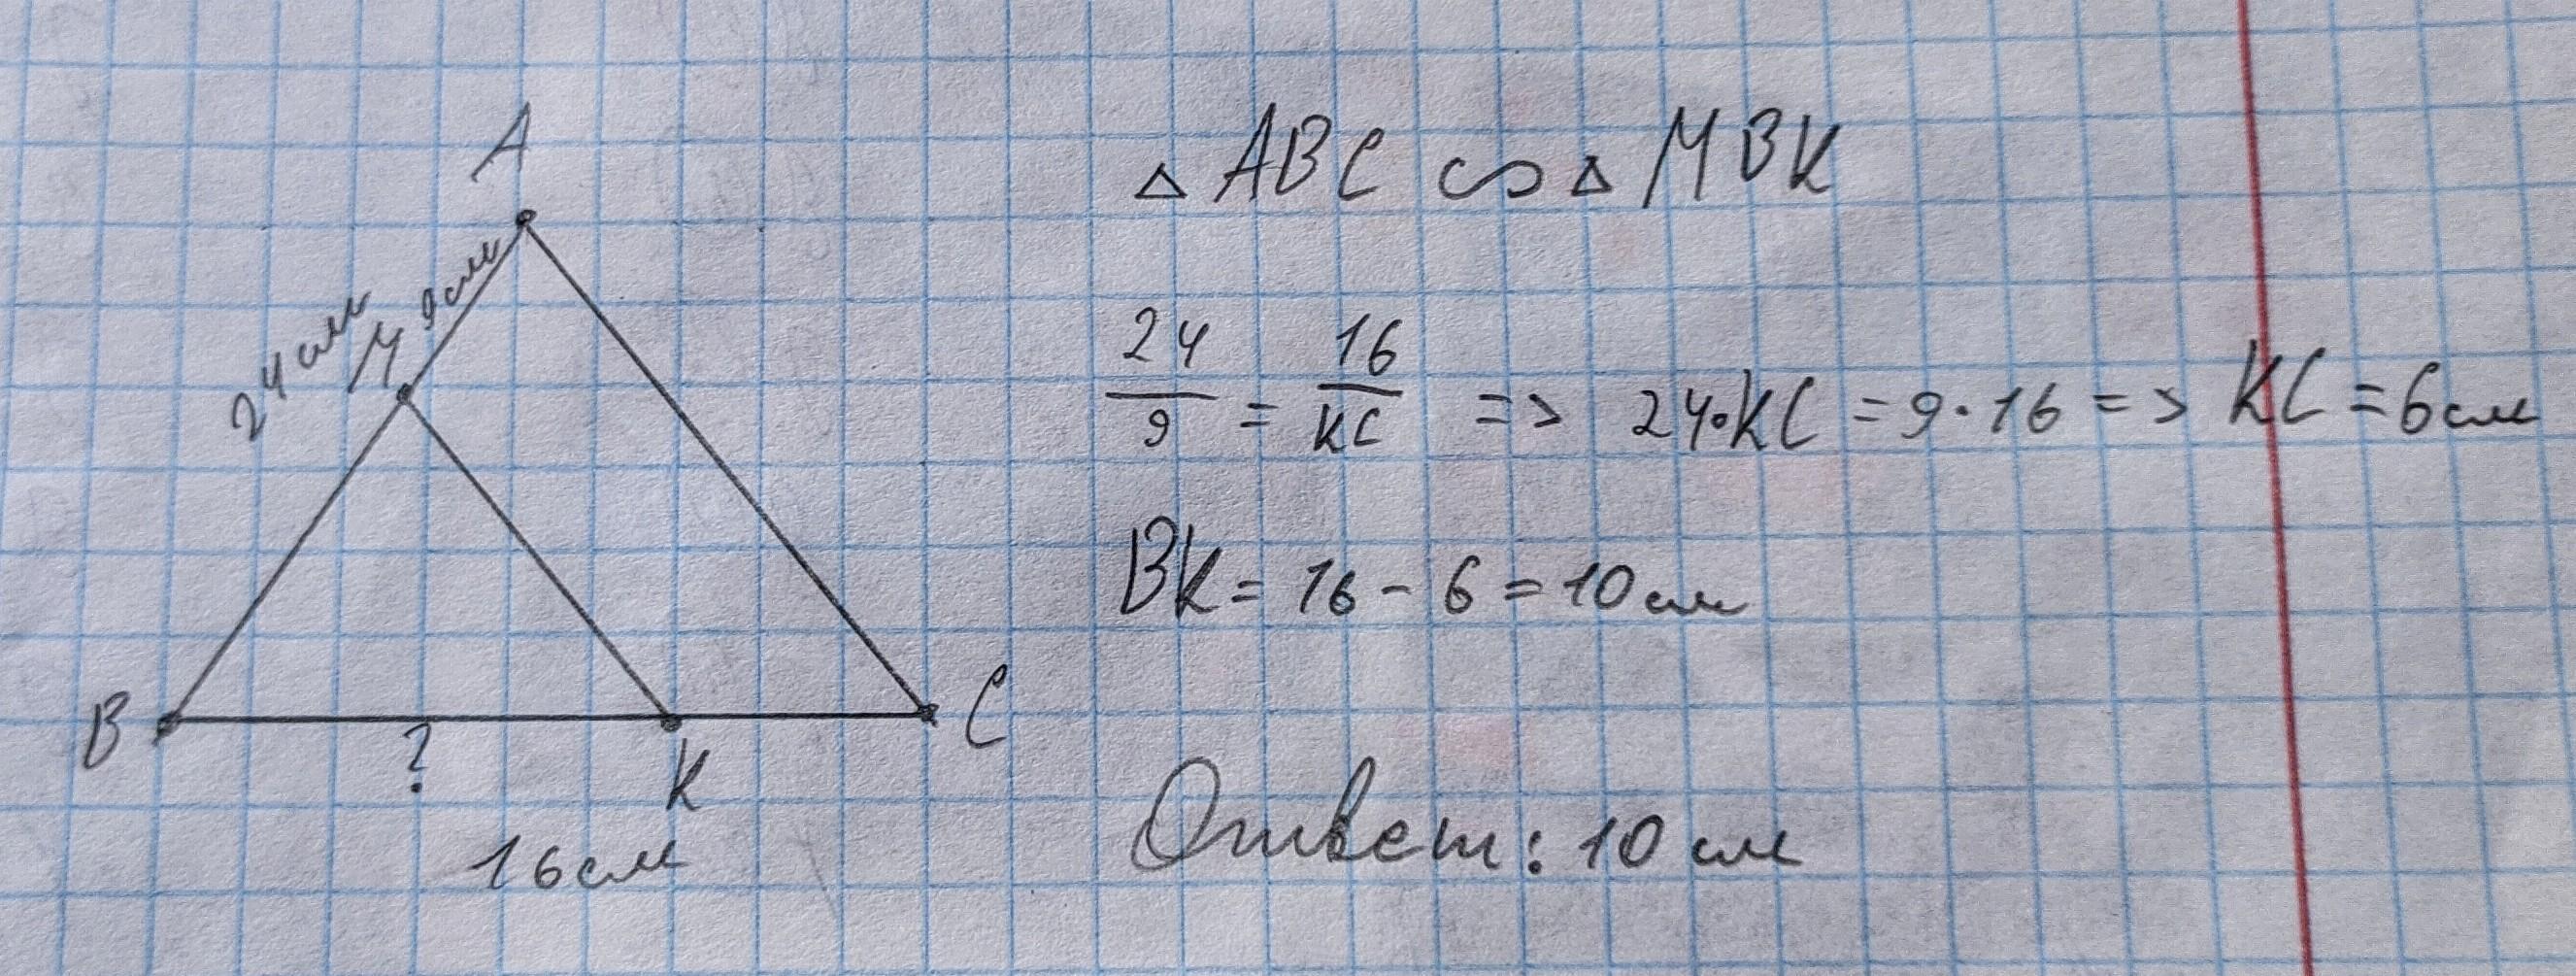 A
24 см
M
9 см
B
?
K
C
16 см
△ABC ∽ △MBK
24/9 = 16/KC => 24·KC = 9·16 => KC = 6 см
BK = 16 - 6 = 10 см
Ответ: 10 см